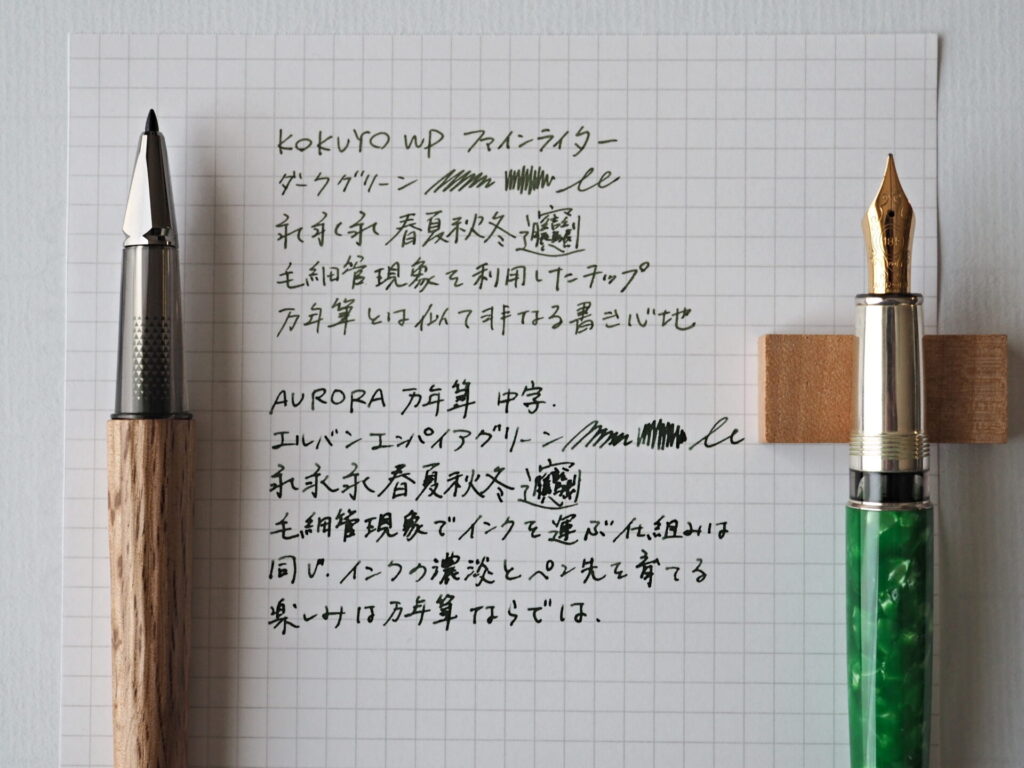 KOKUYO WP ファインライター
ダークグリーン
永永永 春夏秋冬
毛細管現象を利用したチップ
万年筆とは似て非なる書き心地
AURORA 万年筆 中字.
エルバンエンパイアグリーン
永永永 春夏秋冬
毛細管現象でインクを運ぶ仕組みは
同じ. インクの濃淡とペン先を育てる
楽しみは万年筆ならでは.